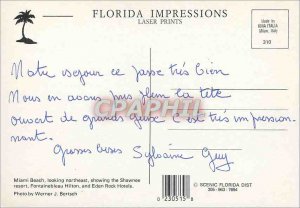 FLORIDA IMPRESSIONS
LASER PRINTS
Made in
KINA ITALIA
Milan, Italy
310
Notre sejour ce passe très bien
Nous en avons pris plein la tête
ouvert de grands yeux c'est très impression-
nant.
Grosses bises Sylvaine Guy
CPAPHIL
Miami Beach, looking northeast, showing the Shawnee
resort, Fontainebleau Hilton, and Eden Rock Hotels.
Photo by Werner J. Bertsch
© SCENIC FLORIDA DIST
305-963-7894